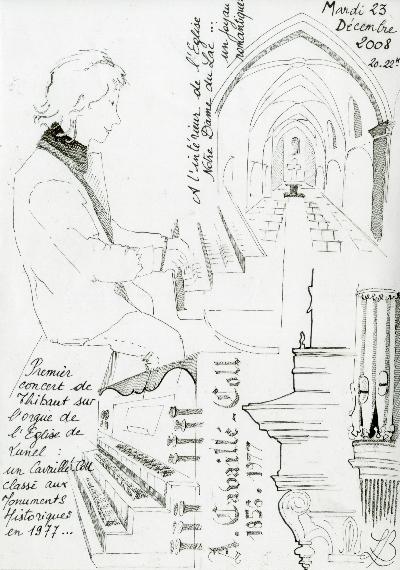 Mardi 23
Décembre
2008
20.22H
A l'intérieur de l'Eglise
Notre Dame du Lac ...
un joyau
romantique
Premier
concert de
Thibaut sur
l'orgue de
l'Eglise de
Lunel
un Cavaillé Coll
classé aux
Monuments
Historiques
en 1977...
A. Cavaillé-Coll
1856. 1977